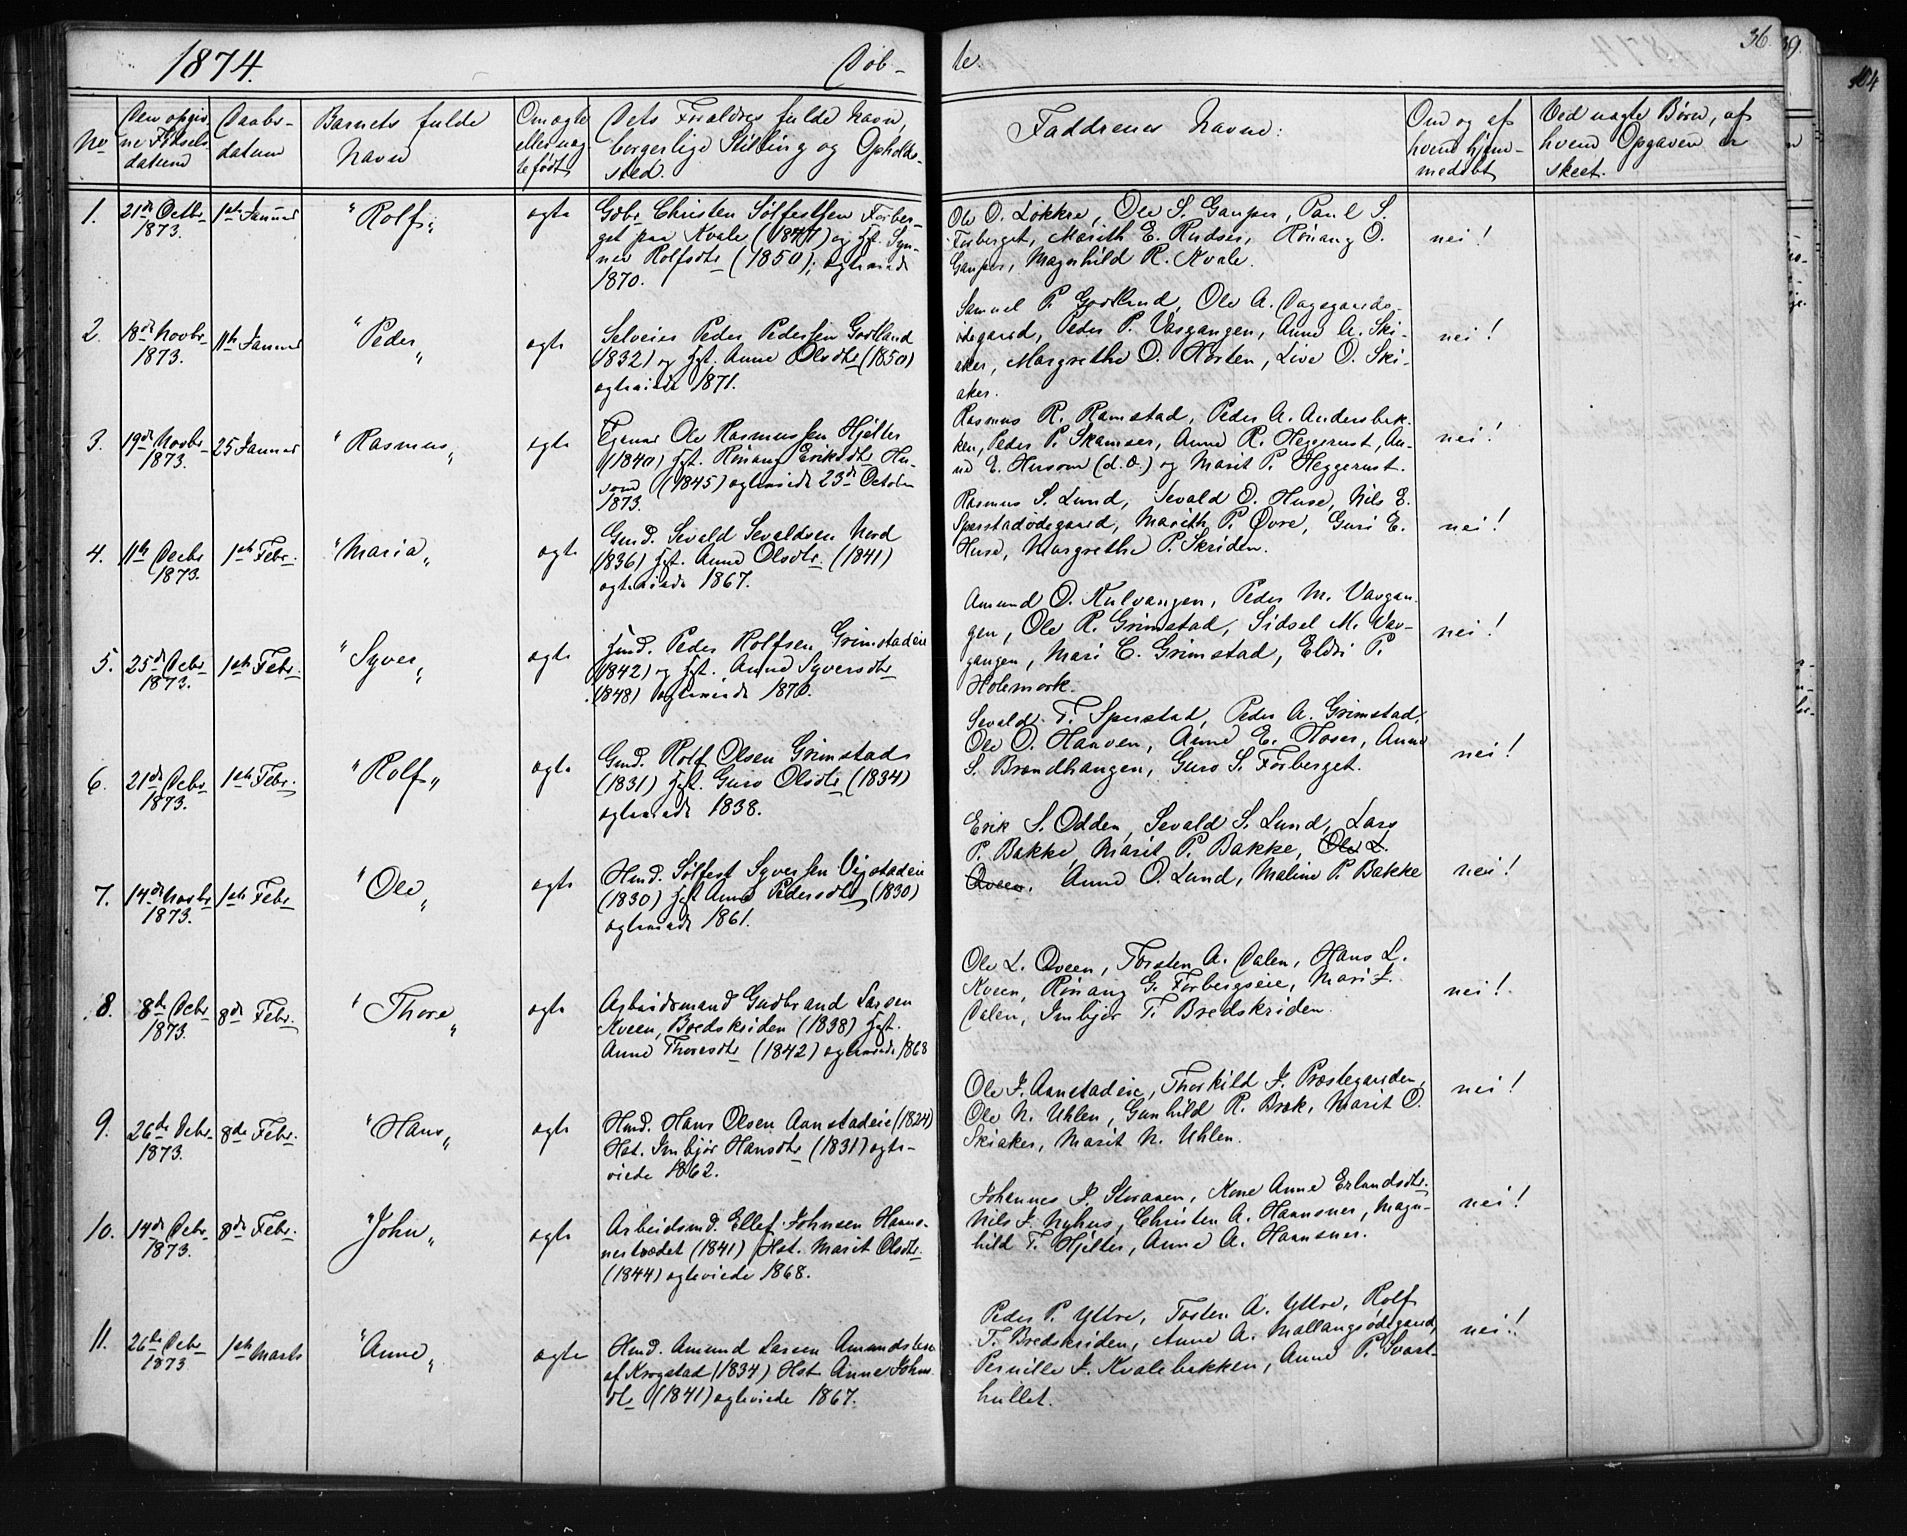 1874.
Døb-
te.
36.
39.
104
No
Den opgiv-
ne Fødsels
datum
Daabs-
datum
Barnets fulde
Navn
Om ægte
eller uæg-
te født
Dets Forældres fulde Navn,
borgerlige Stilling og Opholds-
sted.
Faddrenes Navne:
Om og af
hvem hjem-
medøbt
Ved uægte Børn, af
hvem Opgaven er
skeet.
1.
21de Octbr
1873.
1ste Januar
"Rolf"
ægte
Gdbr. Christen Sølfestsen Forber-
get paa Kvale (1847) og Hst. Syn-
nev Rolfsdtr (1850); ægteviede
1870.
Ole O. Løkkre, Ole S. Gaupar, Paul S.
Forberget, Marith E. Rudser, Rønang O.
Gaupar, Magnhild R. Kvale.
nei!
2.
18de Novbr
1873.
11te Januar
"Peder"
ægte
Selveier Peder Pedersen Gardland
(1832) og Hst. Anne Olsdtr (1850)
ægteviede 1871.
Samuel P. Ole A. Dagsgards-
ødegaard, Peder P. Vargangen, Anne A. Ski-
aker, Margrethe O. Horten, Live O. Ski-
aker.
nei!
3.
19de Novbr
1873.
25 Januar
"Rasmus"
ægte
Ole Rasmussen Hjelter
(1840) Hst. Rønang Eriksdtr Hu-
som (1845) ægteviede 23de October
1873.
Rasmus R. Ramstad, Peder A. Andersbak-
ken, Peder P. Skamser, Anne R. Heggerust, An-
ne E. Husom (d. O.) og Marit P. Heggerust.
nei!
4.
11te Decbr
1873.
1ste Febr.
"Maria"
ægte
Gmd. Sevald Sevaldsen Nord
(1836) Hst. Anne Olsdtr. (1841)
ægteviede 1867.
Rasmus S. Lund, Sevald O. Huse, Nils E.
Sperstadødegaard, Marith P. Øvre, Guri E.
Huse, Margrethe P. Skriden.
nei!
5.
25de Decbr
1873.
1ste Febr.
"Syver"
ægte
Hmd. Peder Rolfsen Grimstadeie
(1842) og Hst. Anne Syversdtr
(1848) ægteviede 1870.
Amund O. Kulvangen, Peder M. Vargan-
gen, Ole R. Grimstad, Sidsel M. Var-
gangen, Mari E. Grimstad, Eldri P.
Holemork.
nei!
6.
21de Decbr
1873.
1ste Febr.
"Rolf"
ægte
Gmd. Rolf Olsen Grimstad
(1831) Hst. Guro Olsdtr (1834)
ægteviede 1838.
Sevald T. Sperstad, Peder A. Grimstad,
Ole O. Haaven, Anne E. Anne
S. Brændhaugen, Guro S. Forberget.
nei!
7.
14de Novbr
1873.
1ste Febr
"Ole"
ægte
Hmd. Sølfest Syversen Vigstadeie
(1830) Hst Anne Pedersdtr (1830)
ægteviede 1861.
Erik S. Odden, Sevald S. Lund, Lars
P. Bakke, Marit P. Bakke, Ole L.
Qveen. Anne O. Lund, Maline P. Bakke
nei!
8.
8de Decbr
1873.
8de Febr.
"Thore"
ægte
Arbeidsmand Gudbrand Larsen
Kveen, Bredskriden (1838) Hst.
Anne Thoresdtr (1842) ægteviede 1868
Ole L. Qveen, Torsten A. Dalen, Hans L.
Kveen, Rønang G. Forbergseie, Mari I.
Dalen, Imbjør T. Bredskriden.
nei!
9.
26de Decbr.
1873.
8de Febr.
"Hans"
ægte
Hmd. Hans Olsen Aanstadeie (1824)
Hst. Imbjør Hansdtr (1831) ægte-
viede 1862.
Ole J. Aanstadeie, Thorkild J. Præstegarden,
Ole N. Uhlen, Gunhild R. Bræk, Marit O.
Skiaker, Marit N. Uhlen.
nei!
10.
14de Decbr
1873.
8de Febr.
"John"
ægte
Arbeidsmd. Ellef Johnsen Haans-
nertrædet (1841) Hst. Marit Olsdtr.
(1844) ægteviede 1868.
Johannes J. Storaaen, Kone Anne Erlandsdtr.
Nils J. Nyhus, Christen A. Haansner, Magn-
hild T. Hjelter, Anne A. Haansner.
nei!
11.
26de Decbr
1873
1ste Marts
"Anne"
ægte
Hmd. Amund Larsen
af Krogstad (1834) Hst. Anne Johns-
dtr (1841) ægteviede 1867.
Peder P. Yttre, Torsten A. Yttre, Rolf
T. Bredskriden, Anne A. Mallangsødegaard,
Pernille J. Kvalebakken, Anne P. Svart-
hullet.
nei!